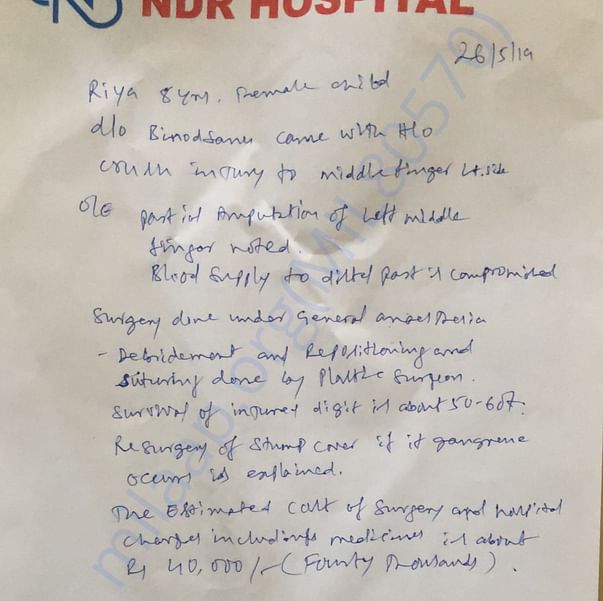 NDR HOSPITAL
26/5/19
Riya 8yrs. Female child
d/o Binodsanu came with H/o
crush injury to middle finger Lt. side
O/E partial Amputation of Left middle
finger noted.
Blood Supply to distal part is compromised
Surgery done under General anaesthesia
- Debridement and Repositioning and
suturing done by Plastic Surgeon.
Survival of injured digit is about 50-60%.
Resurgery of stump cover if it gangrene
occurs is explained.
The Estimated cost of surgery and hospital
charges includings medicines is about
Rs 40,000/- (Fourty Thousands).
milaap.org(MIL80570)